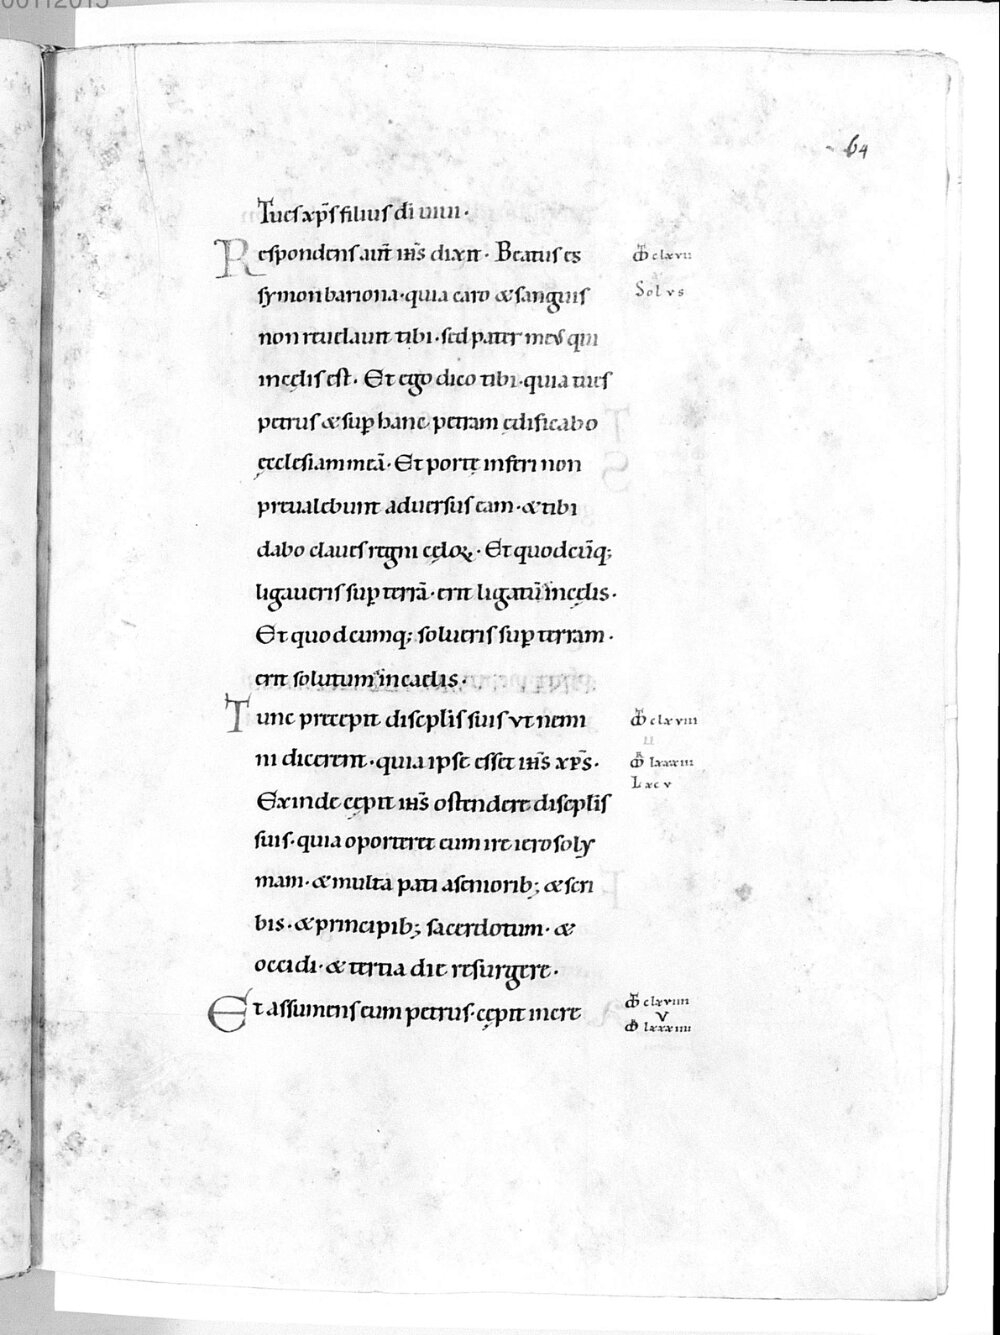 64
Tu es xp̄s filius dī uiui·
Respondens aut̄ ih̄s dixit· Beatus es
symon bariona· quia caro & sanguis
non reuelauit tibi· sed pater meus qui
in cęlis est· Et ego dico tibi· quia tu es
petrus & sup̱ hanc petram ędificabo
ęcclesiam meā· Et portę inferi non
preualebunt aduersus eam· & tibi
dabo claues regni cęloꝝ· Et quodcūq;
ligaueris sup̱ terrā· erit ligatū in cęlis·
Et quodcumq; solueris sup̱ terram·
erit solutum in caelis·
Tunc precepit discplis suis ut nemi
ni dicerent· quia ipse esset ih̄s xp̄s·
Exinde cępit ih̄s ostendere discplis
suis· quia oporteret eum ire ierosoly
mam· & multa pati a seniorib; & scri
bis· & principib; sacerdotum· &
occidi· & tertia die resurgere·
Et assumens eum petrus· cępit incre
clxvii
Solus
clxviii
II
lxxxiii
Lxcv
clxviiii
V
lxxxiiii